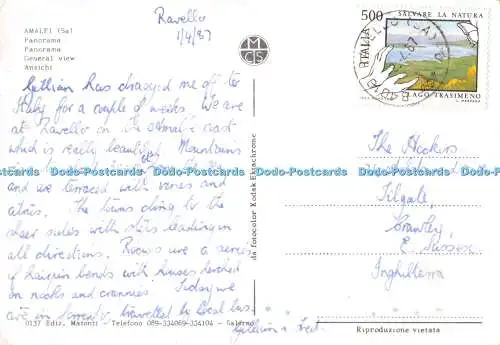 AMALFI (Sa)
Panorama
Panorama
General view
Ansicht
Ravello
1/4/87
MCS
500
SALVARE LA NATURA
ITALIA
LAGO TRASIMENO
Gillian has chased me off to
Italy for a couple of weeks. We are
at Ravello on the Amalfi coast
which is really beautiful. Mountains
and are terraced with vines and
citrus. The towns cling to the
sheer sides with steps leading in
all directions. Roads are a series
of hairpin bends with houses perched
on nooks and crannies. Today we
are in Sorrento, travelled by local bus.
Gillian &
The Hookins
Tilgate,
Crawley,
E. Sussex
Inghilterra
da fotocolor Kodak Ektachrome
0137 Ediz. Matonti - Telefono 089-334069-334104 - Salerno
Riproduzione vietata
Dodo-Postcards Dodo-Postcards Dodo-Postcards Dodo-Postcards